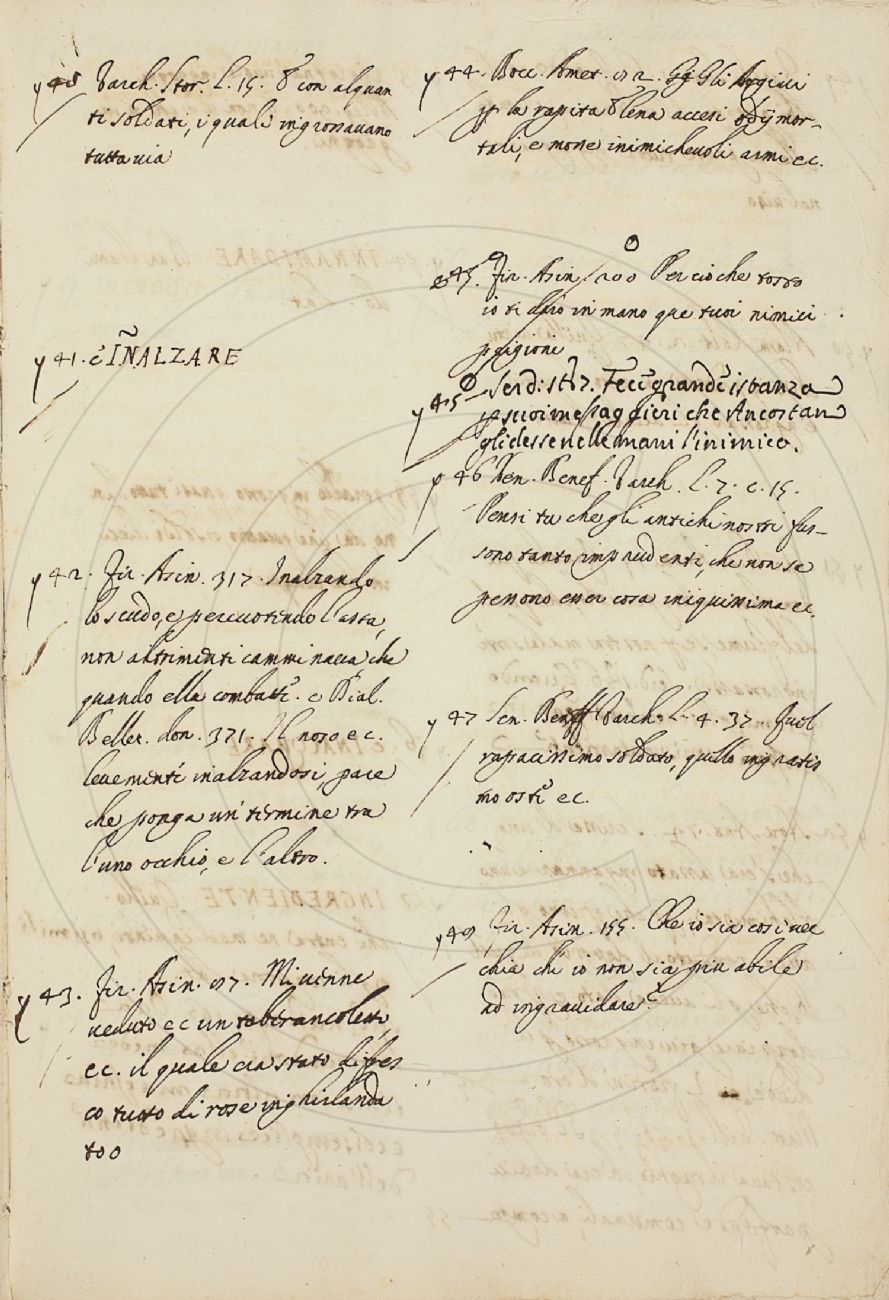 y 48 Varch. Stor. L. 15. E con alquan
ti soldati, i quali ingrossavano
tuttavia
y 41. é INALZARE
y 42. Fir. Asin. 317. Inalzando
lo scudo, e percuotendo l'asta,
non altrimenti camminava, che
quando ella combatte. e Dial.
Bellez. don. 371. Il naso ec.
levemente inalzandosi, pare
che ponga un termine tra
l'uno occhio, e l'altro.
y 43. Fir. Asin. 97. Mi venne
veduto ec un tabernacoletto,
ec. il quale era stato dal
co tutto di rose inghirlanda
too
y 44. Bocc. Amet. 92. Gli Argivi
p la rapita Elena accesi odij mor-
tali, e mosse inimichevoli armi ec.
O
45. Fir. Asin. 200 Percioché tosto
io ti darò in mano que tuoi nimici
prigioni
y 45 O Serd: st: 7. Fece grande istanza
p suoi messaggieri che Ancostan
gli desse nelle mani l'inimico.
y 46 Sen. Benef. Varch. L. 7. c. 15.
Pensi tu che gli antichi nostri fus-
sono tanto imprudenti, che non sa
pessono esser cosa iniquissima ec.
y 47 Sen. Benff Varch. L. 4. 37. Quel
rapacissimo soldato, quello ingratis
mo oste ec.
y 49 Fir. Asin. 155. Che io sia così vec
chia ch' io non sia più abile
ad ingravidare?